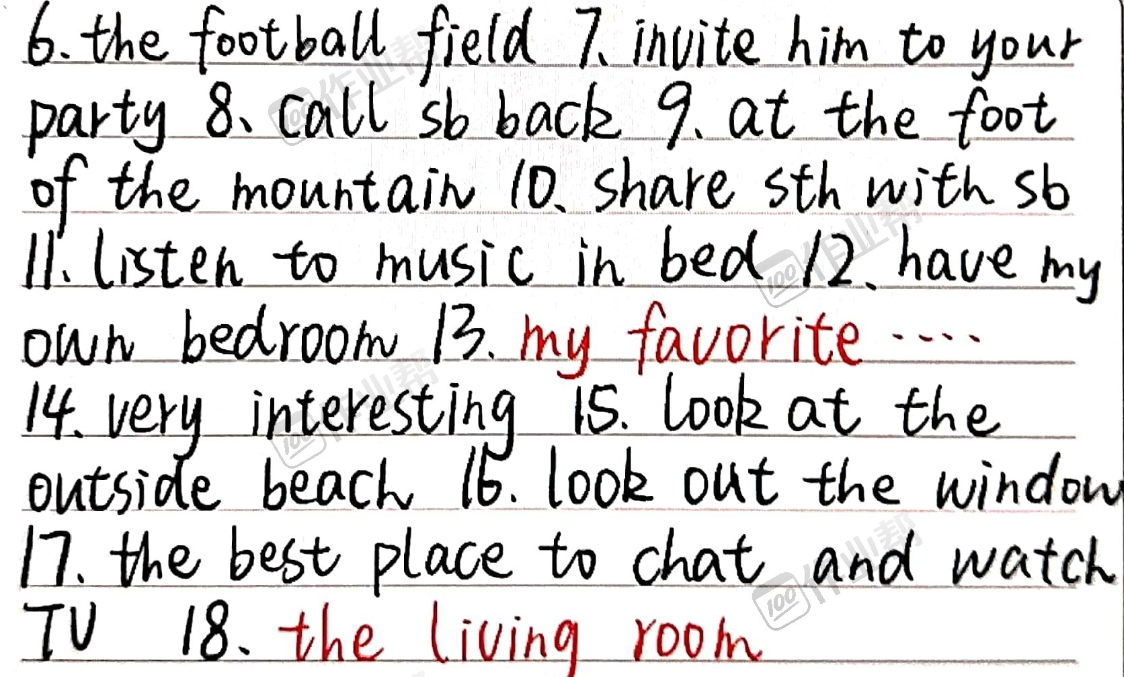 6. the football field 7、invite him to your
party 8、call sb back 9、at the foot
of the mountain 10、share sth with sb
11、listen to music in bed 12、have my
own bedroom 13. my favorite ....
14. very interesting 15. look at the
outside beach 16. look out the window
17. the best place to chat and watch
TV 18、the living room
作业帮
作业帮
作业帮
作业帮
作业帮